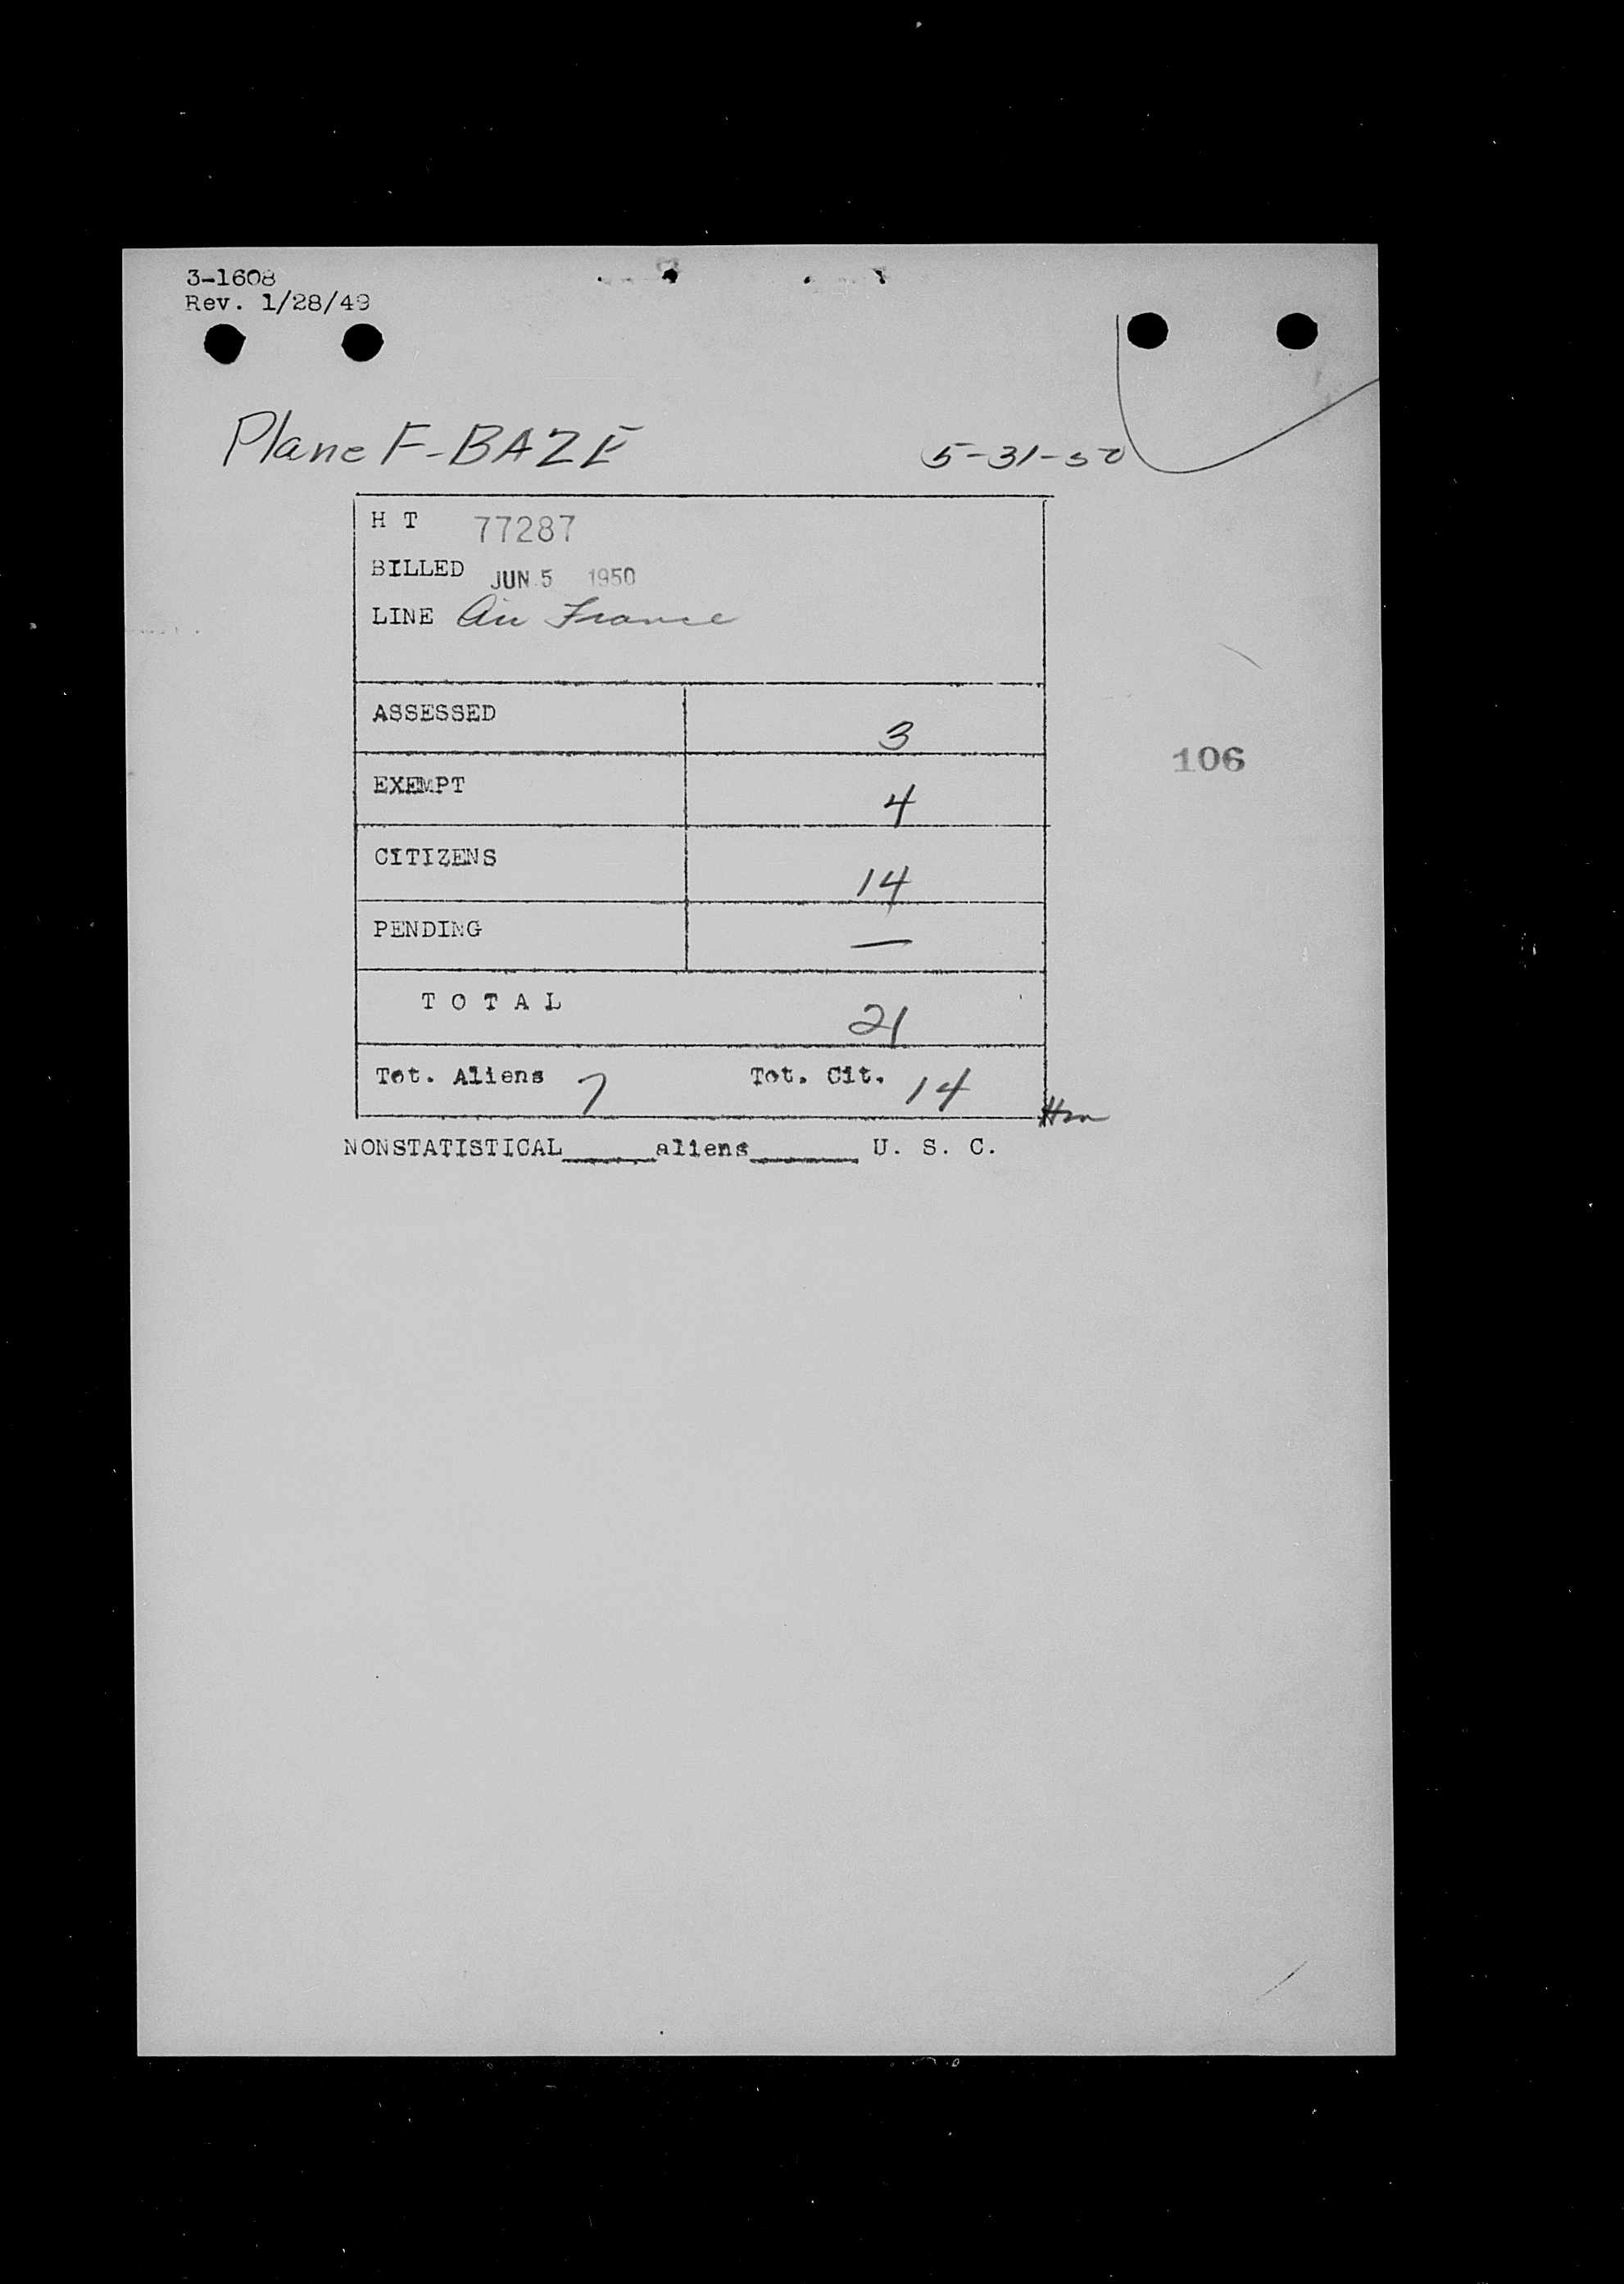 3-1608
Rev. 1/28/49
Plane F-BAZE 5-31-50
H T 77287
BILLED JUN 5 1950
LINE Air France
ASSESSED 3
106
EXEMPT 4
CITIZENS 14
PENDING —
T O T A L 21
Tot. Aliens 7 Tot. Cit. 14
NONSTATISTICAL_____aliens______ U. S. C.